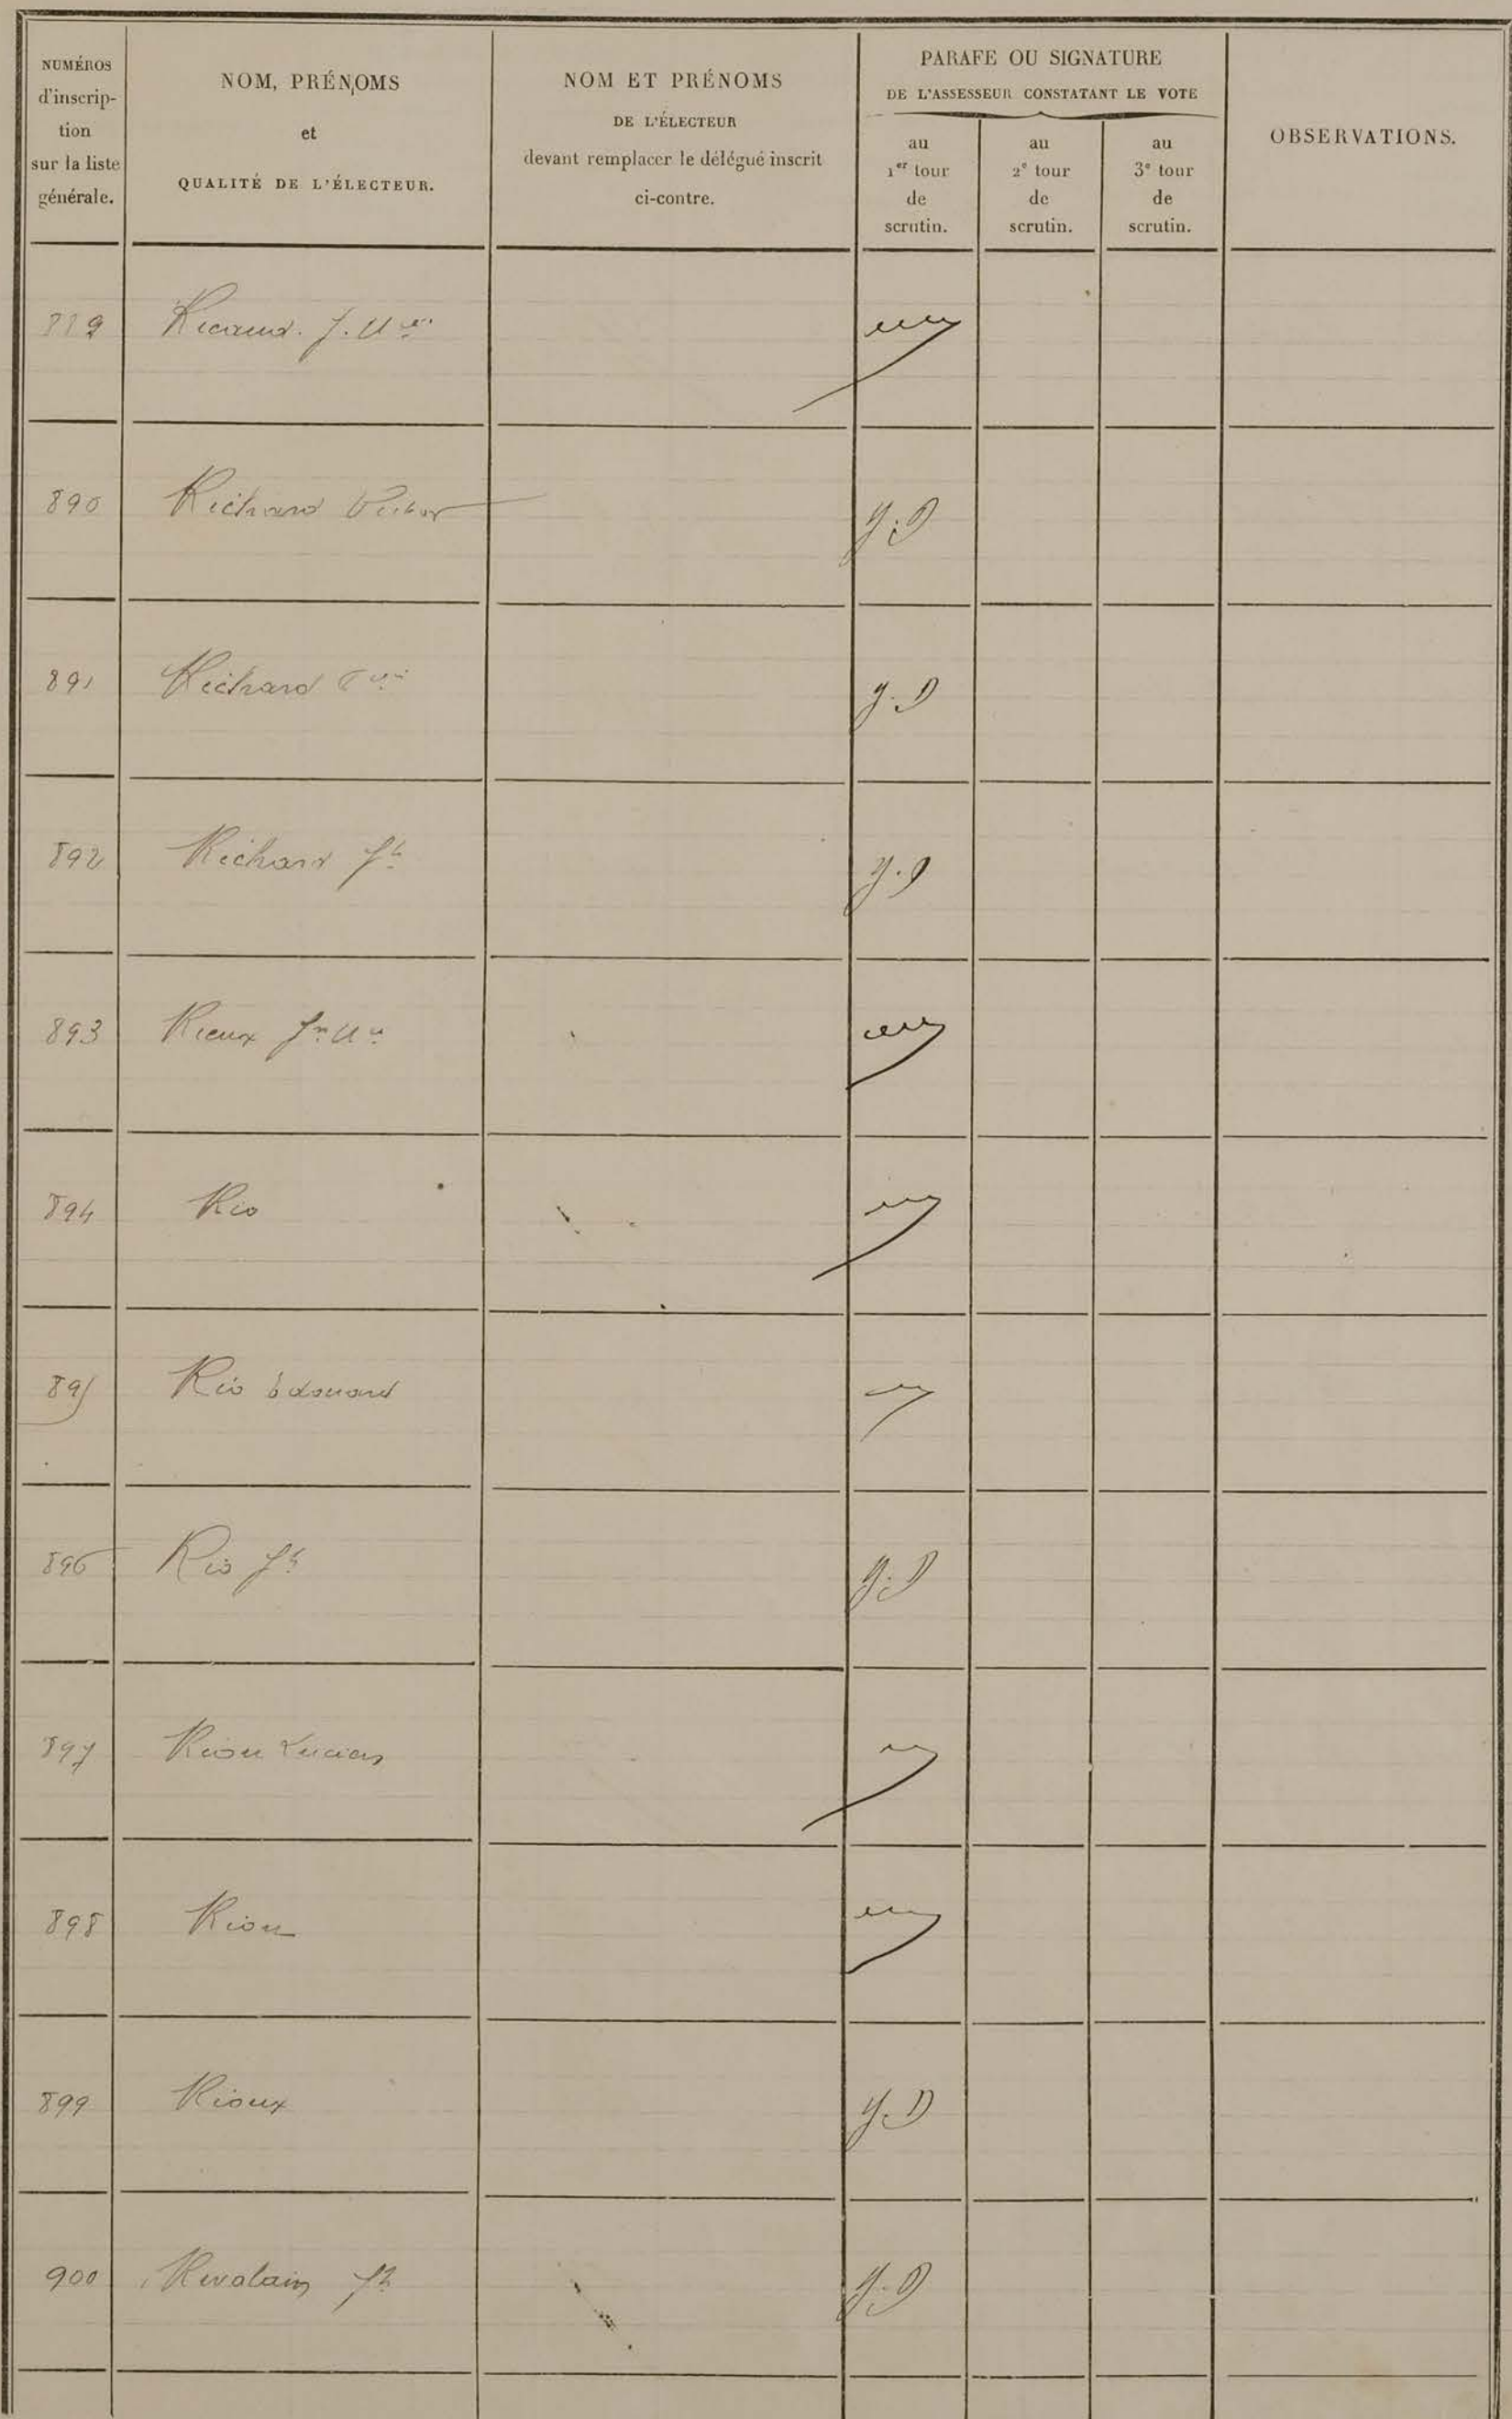 NUMÉROS
d'inscrip-
tion
sur la liste
générale.
NOM, PRÉNOMS
et
QUALITÉ DE L'ÉLECTEUR.
NOM ET PRÉNOMS
DE L'ÉLECTEUR
devant remplacer le délégué inscrit
ci-contre.
PARAFE OU SIGNATURE
DE L'ASSESSEUR CONSTATANT LE VOTE
au
1er tour
de
scrutin.
au
2e tour
de
scrutin.
au
3e tour
de
scrutin.
OBSERVATIONS.
889 Ricaud. J.
890 Richard
891 Richard
892 Richard Jh
893 Rieux
894 Rio
895 Rio Edouard
896 Rio Jh
897 Riou Lucien
898 Riou
899 Rioux
900 Rivalain Jh